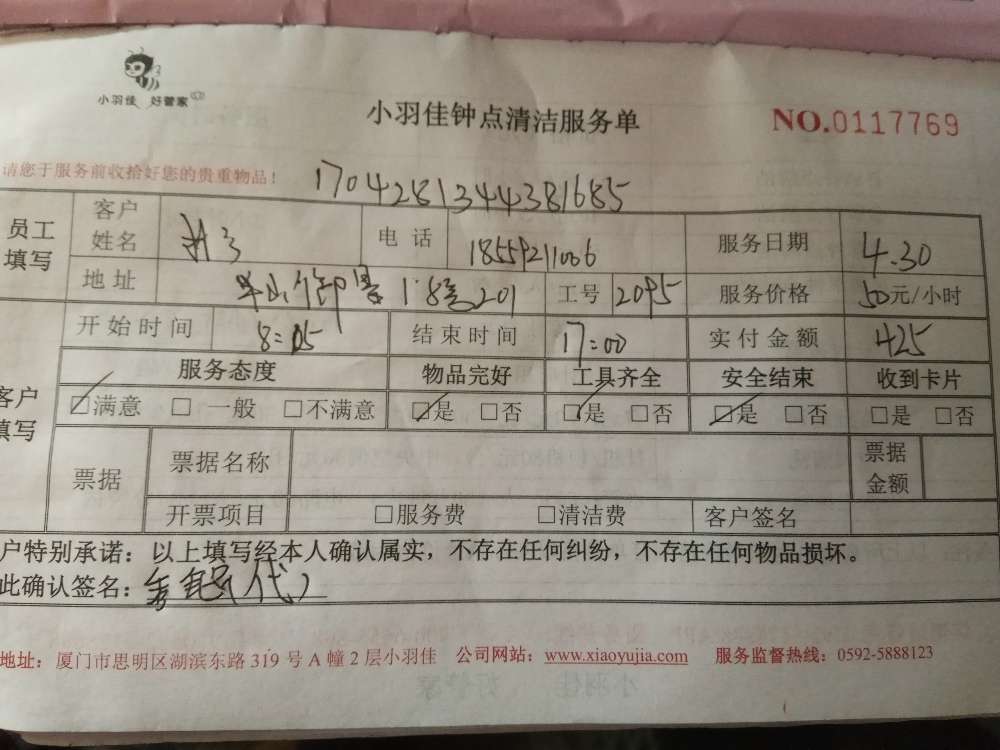 小羽佳 好管家
小羽佳钟点清洁服务单
NO.0117769
请您于服务前收拾好您的贵重物品！
17042813444381685
员工填写
客户姓名
电话 18559211006
服务日期 4.30
地址 18号201
工号 2095
服务价格 50元/小时
开始时间 8:05
结束时间 17:00
实付金额 425
客户填写
服务态度 物品完好 工具齐全 安全结束 收到卡片
☑满意 □一般 □不满意 ☑是 □否 ☑是 □否 ☑是 □否 □是 □否
票据
票据名称
票据金额
开票项目 □服务费 □清洁费 客户签名
户特别承诺：以上填写经本人确认属实，不存在任何纠纷，不存在任何物品损坏。
此确认签名： （代）
地址：厦门市思明区湖滨东路 319 号 A 幢 2 层小羽佳 公司网站：www.xiaoyujia.com 服务监督热线：0592-5888123